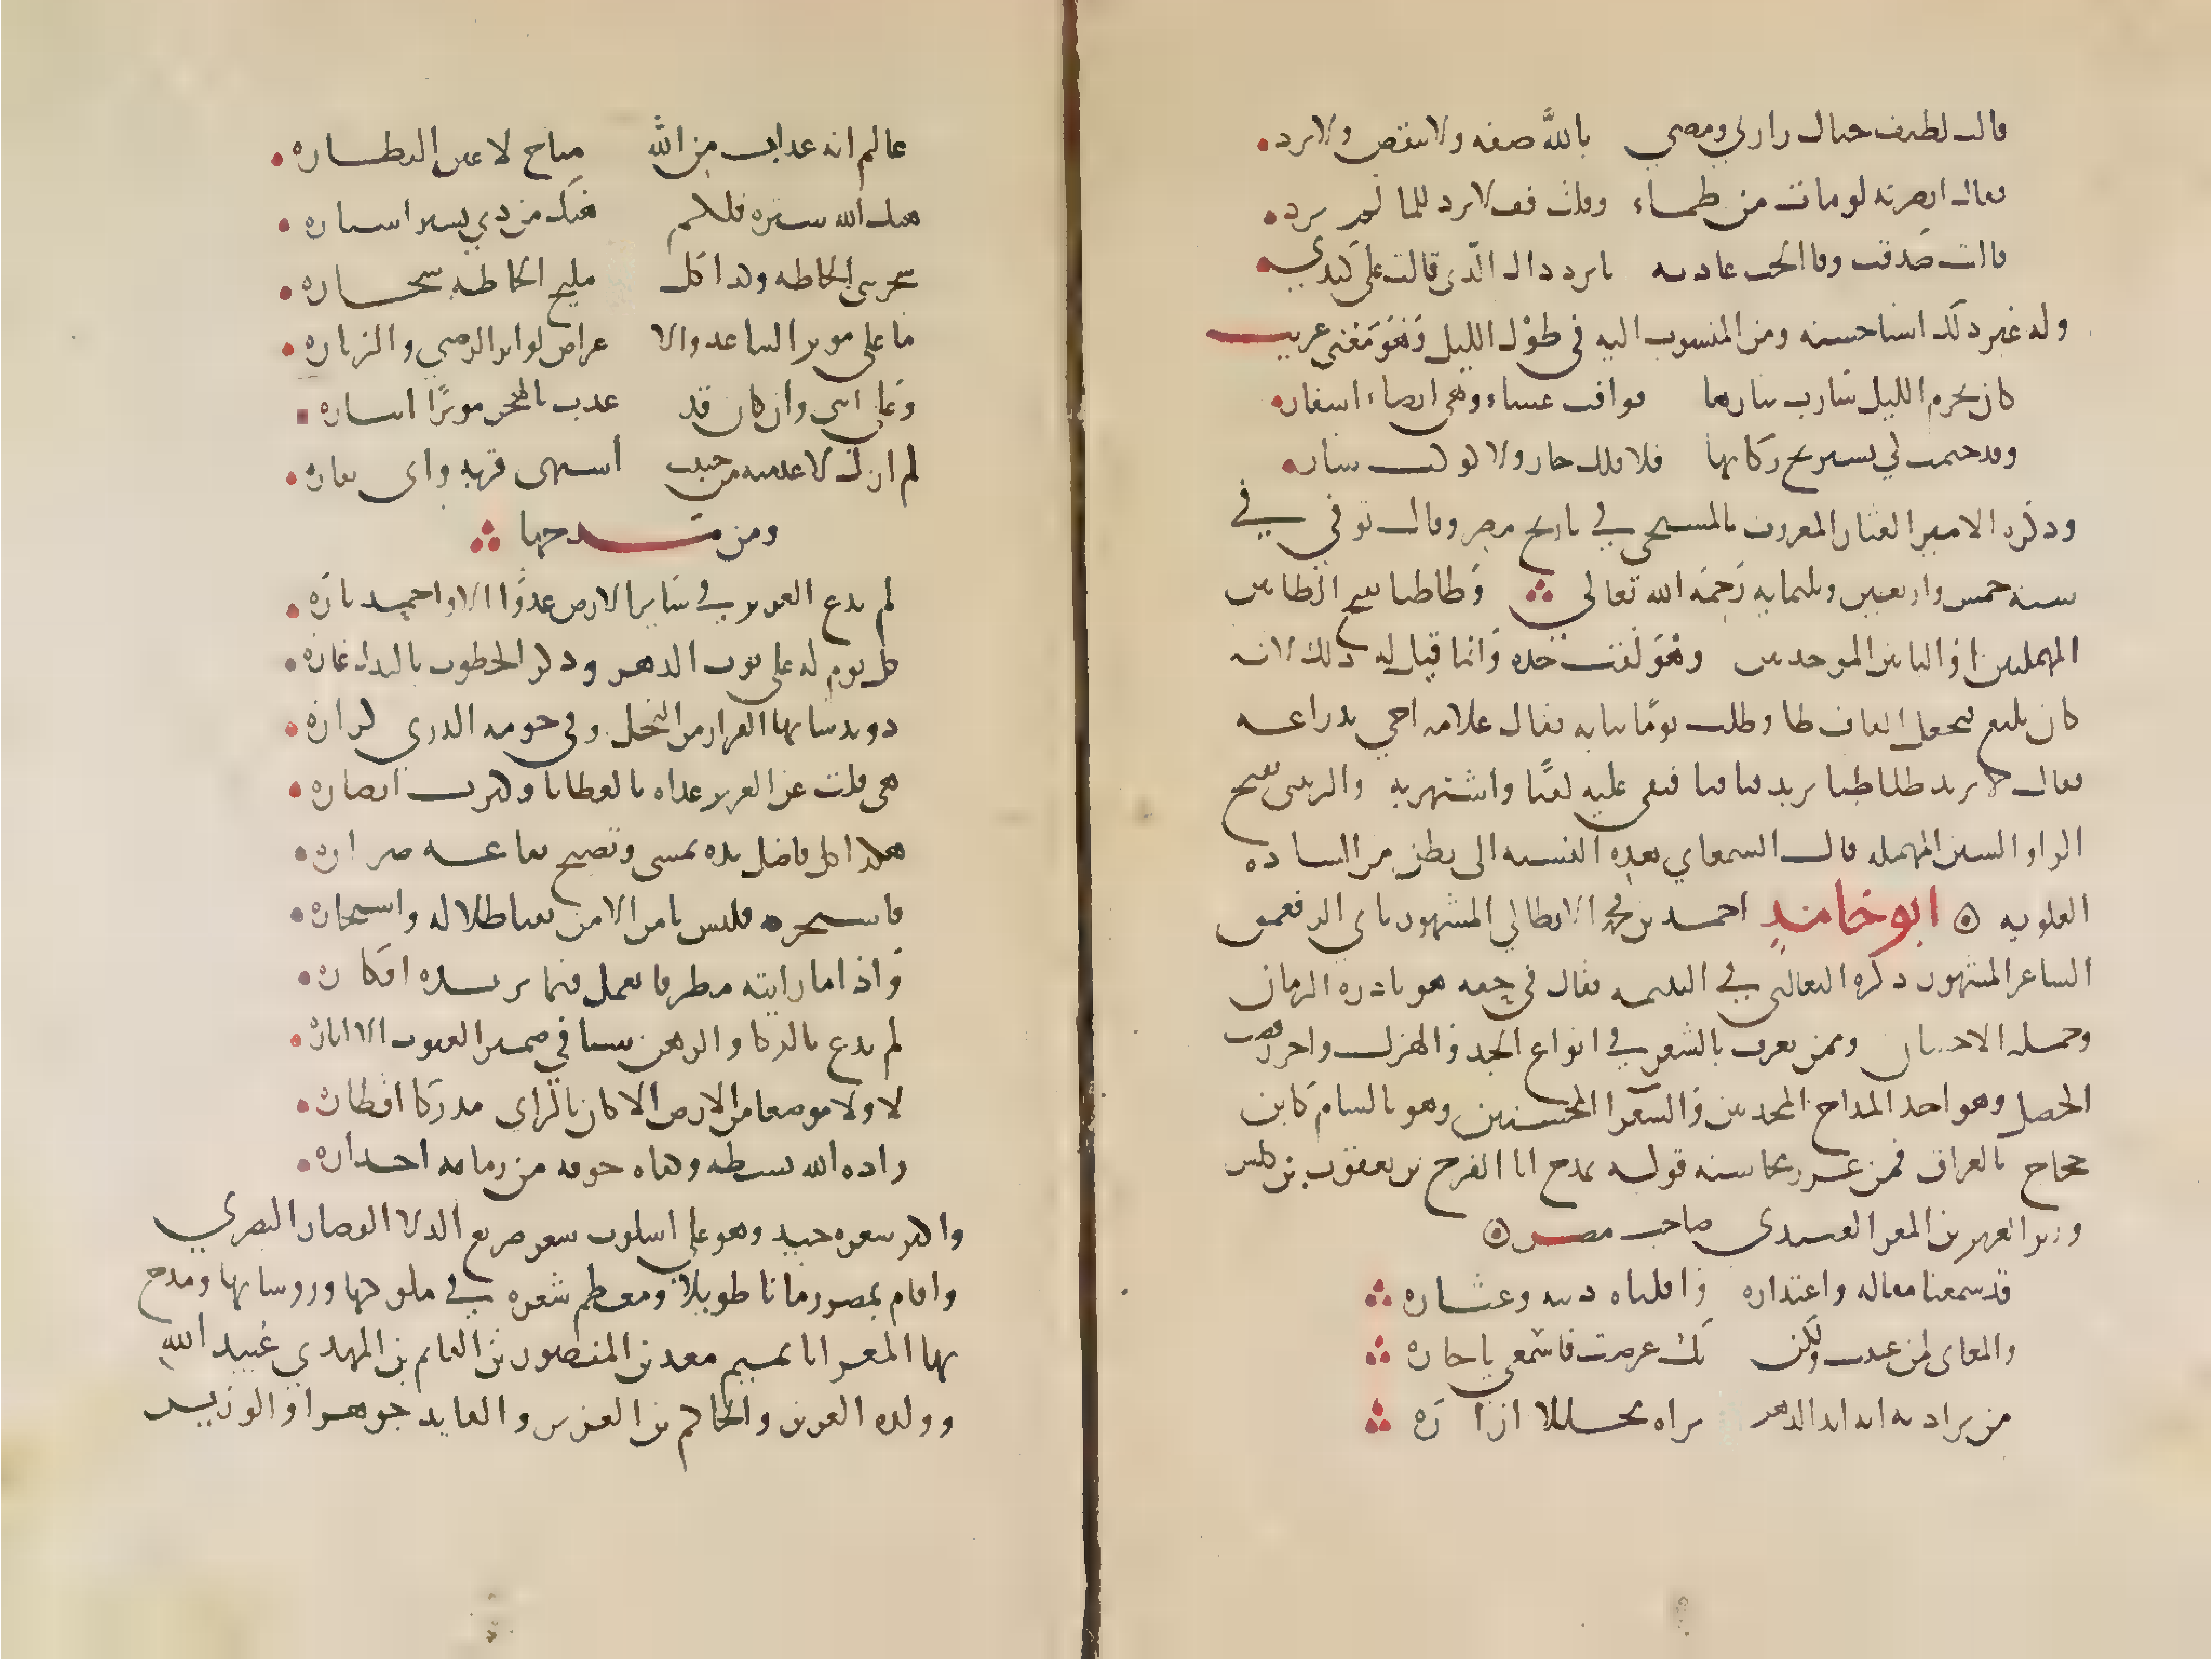 قالت لطيف خيال زارني ومضى بالله صفه ولا تنقص ولا تزد
فقال ابصرته لو مات من ظماء وقلت قف لا ترد للما لم يرد
قالت صدقت وفا الحب عادته يا برد ذاك الذي قالت على كبدي
وله غير ذلك اشيا حسنه ومن المنسوب اليه في طول الليل وهو معنى غريب
كان نجوم الليل سارت نهارها فوافت عشاء وهي انضاء اسفار
وقد خيمت كي يستريح ركابها فلا فلك جار ولا كوكب سار
وذكره الامير المختار المعروف بالمسبحي في تاريخ مصر وقال توفي في
سنه خمس واربعين وثلثمايه رحمه الله تعالى وطباطبا بفتح الطائين
المهملتين والبائين الموحدتين وهو لقب جده وانما قيل له ذلك لانه
كان يلثغ فيجعل القاف طا وطلب يوما ثيابه فقال غلامه اجي بدراعه
فقال لا يريد طباطبا يريد قبا قبا فبقي عليه لقبا واشتهر به والرسي بفتح
الراو السين المهمله قال السمعاني هذه النسبه الى بطن من الساده
العلويه ابو حامد احمد بن محمد الانطاكي المشهور بابي الرقعمق
الشاعر المشهور ذكره الثعالبي في اليتيمه فقال في حقه هو نادره الزمان
وجمله الاحسان وممن تصرف بالشعر في انواع الجد والهزل واحرز قصب
الخصل وهو احد المداح المجيدين والشعرا المحسنين وهو بالشام كابن
حجاج بالعراق فمن غرر محاسنه قوله يمدح ابا الفرج بن يعقوب بن كلس
وزير العزيز بن المعز العبيدي صاحب مصر
قد سمعنا مقاله واعتذاره واقلناه ذنبه وعثاره
والمعاني لمن عنيت ولكن بك عرضت فاسمعي يا جاره
من يراديه انه ابد الدهر تراه محللا ازراره
عالم انه عذاب من الله متاح لاعين النظاره
هتك الله ستره فلكم هتك من ذي تستر استاره
سحرتني الحاظه وكذا كل مليح الحاظه سحاره
ما على موثر التباعد والا عراض لو اثر الرضى والزياره
وعلى انني وان كان قد عذب بالهجر موثرا ايثاره
لم ازل لا عدمته من حبيب اشتهى قربه وابى نفاره
ومن مديحها
لم يدع العزيز في سائر الارض عدوا الا واخمد ناره
كل يوم له على نوب الدهر وكر الخطوب بالبذل غاره
ذو يد شانها الفرار من البخل وفي حومه الندى كراره
هي فلت عن العزيز عداه بالعطايا وكثرت انصاره
هكذا كل فاضل يده تمسى وتضحى نفاعه ضراره
فاستجره فليس يامن الا من تفيا ظلاله واستجاره
واذا ما رايته مطرقا يعمل فيما يريده افكاره
لم يدع بالذكا والذهن شيا في ضمير الغيوب الا اناره
لا ولا موضعا من الارض الا كان بالراى مدركا اقطاره
زاده الله بسطه وكفاه خوفه من زمانه احذاره
واكثر شعره جيد وهو على اسلوب شعر صريع الدلا القصار البصري
واقام بمصر زمانا طويلا ومعظم شعره في ملوكها وروسائها ومدح
بها المعز ابا تميم معد بن المنصور بن القايم بن المهدي عبيد الله
وولده العزيز والحاكم بن العزيز والقايد جوهرا والوزير